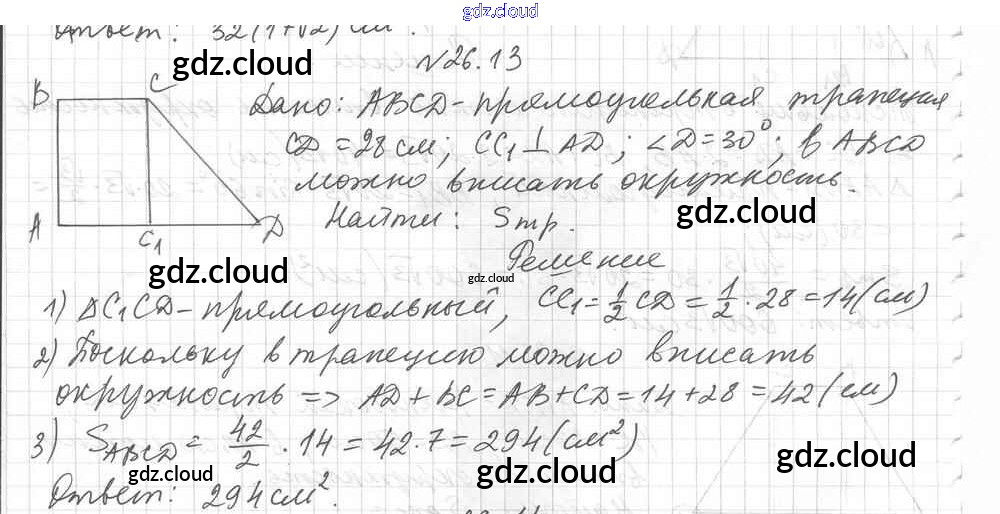 gdz.cloud
Ответ: 32(1+√2) см².
gdz.cloud
gdz.cloud
№26.13
B C
Дано: ABCD - прямоугольная трапеция
CD = 28 см; CC₁ ⊥ AD; ∠D = 30°; в ABCD
можно вписать окружность.
gdz.cloud
A C₁ D
Найти: Sтр.
Решение
gdz.cloud
gdz.cloud
1) ΔC₁CD - прямоугольный, CC₁ = 1/2 CD = 1/2 · 28 = 14 (см)
2) Поскольку в трапецию можно вписать
окружность => AD + BC = AB + CD = 14 + 28 = 42 (см)
3) S_ABCD = 42/2 · 14 = 42 · 7 = 294 (см²)
gdz.cloud
gdz.cloud
gdz.cloud
Ответ: 294 см².